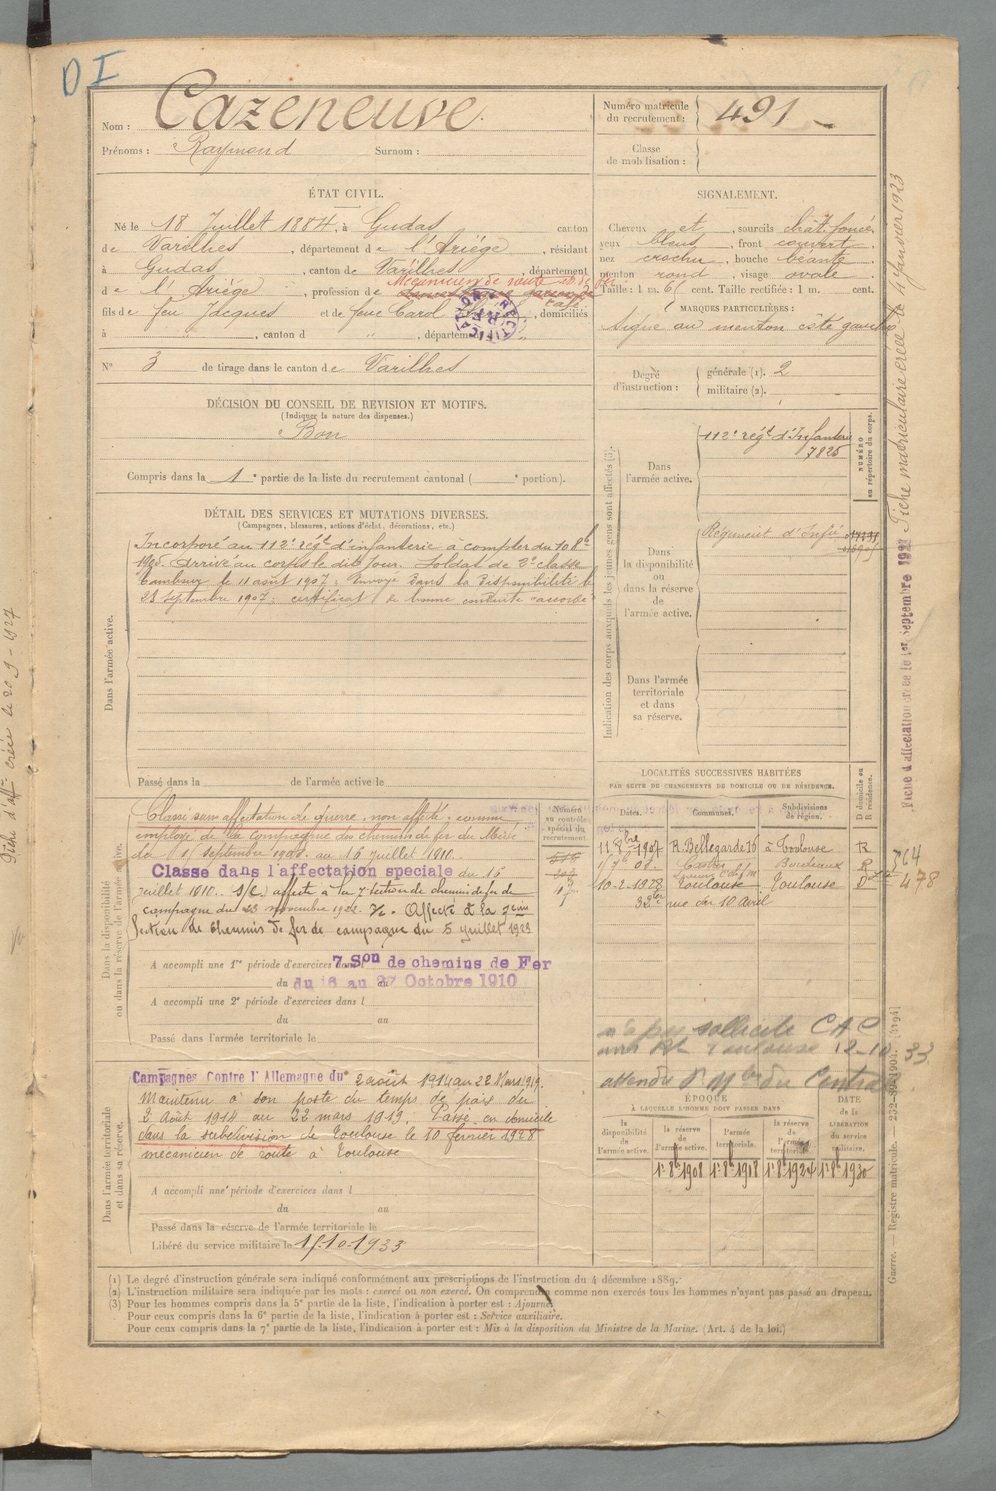 D I
Nom : Cazeneuve.
Prénoms : Raymond Surnom :
Numéro matricule du recrutement : 491
Classe de mobilisation :
ÉTAT CIVIL.
Né le 18 Juillet 1884, à Gudas canton
de Varilhes, département de l'Ariège, résidant
à Gudas, canton de Varilhes, département
Mécanicien de route
de l'Ariège, profession de
fils de feu Jacques et de feue Carol, domiciliés
à , canton d " , département "
N° 3 de tirage dans le canton de Varilhes
SIGNALEMENT.
Cheveux et , sourcils chât. foncé,
yeux bleus , front couvert ,
nez crochu , bouche béante ,
menton rond , visage ovale
Taille : 1 m. 61 cent. Taille rectifiée : 1 m. cent.
MARQUES PARTICULIÈRES :
signe au menton côté gauche
Degré d'instruction : générale (1). 2
militaire (2).
DÉCISION DU CONSEIL DE REVISION ET MOTIFS.
(Indiquer la nature des dispenses.)
Bon
Compris dans la 1e partie de la liste du recrutement cantonal ( e portion).
DÉTAIL DES SERVICES ET MUTATIONS DIVERSES.
(Campagnes, blessures, actions d'éclat, décorations, etc.)
Dans l'armée active.
Incorporé au 112e régt d'infanterie à compter du 10 8bre
1905. Arrivé au corps le dit jour. Soldat de 2e classe
Tambour le 11 août 1907. Envoyé dans la disponibilité le
28 septembre 1907; certificat de bonne conduite "accordé"
Passé dans la de l'armée active le
Indication des corps auxquels les jeunes gens sont affectés (3).
NUMÉRO au répertoire du corps.
Dans l'armée active.
112e régt d'Infanterie
7825
Dans la disponibilité ou dans la réserve de l'armée active.
Régiment d'Infie
Dans l'armée territoriale et dans sa réserve.
Dans la disponibilité ou dans la réserve de l'armée active.
Classé sans affectation de guerre, non affecté, comme
employé de la Compagnie des chemins de fer du Midi
du 1er septembre 1908 au 16 juillet 1910.
Classé dans l'affectation speciale du 16
juillet 1910. affecté à la 7e section de chemin de fer de
campagne du 23 novembre 1922. Affecté à la 7eme
Section de Chemins de fer de campagne du 5 juillet 1923
A accompli une 1re période d'exercices dans l 7 Son de chemins de Fer
du 6 au 27 Octobre 1910
A accompli une 2e période d'exercices dans l
du au
Passé dans l'armée territoriale le
Numéro au contrôle spécial du recrutement
LOCALITÉS SUCCESSIVES HABITÉES
PAR SUITE DE CHANGEMENTS DE DOMICILE OU DE RÉSIDENCE.
Dates. Communes. Subdivisions de région. D domicile ou R résidence.
11 8bre 1907 R. Bellegarde 16 à Toulouse R
08. Castres Bordeaux R
10-2-1928 Toulouse Toulouse D
32bis rue du 10 Avril
764
478
n'a pas sollicité CAC
Toulouse 12-10 33
Dans l'armée territoriale et dans sa réserve.
Campagnes Contre l'Allemagne du 2 août 1914 au 22 Mars 1919.
Maintenu à son poste du temps de paix du
2 Août 1914 au 22 mars 1919. Passé en domicile
dans la subdivision de Toulouse le 10 février 1928
mécanicien de route à Toulouse
A accompli une période d'exercices dans l
du au
Passé dans la réserve de l'armée territoriale le
Libéré du service militaire le 15-10-1933
ÉPOQUE
À LAQUELLE L'HOMME DOIT PASSER DANS
la disponibilité de l'armée active. la réserve de l'armée active. l'armée territoriale. la réserve de l'armée territoriale. DATE de la LIBÉRATION du service militaire.
1er 8bre 1908 1er 8bre 1918 1er 8bre 1924 1er 8bre 1930
(1) Le degré d'instruction générale sera indiqué conformément aux prescriptions de l'instruction du 4 décembre 1889.
(2) L'instruction militaire sera indiquée par les mots : exercé ou non exercé. On comprendra comme non exercés tous les hommes n'ayant pas passé au drapeau.
(3) Pour les hommes compris dans la 5e partie de la liste, l'indication à porter est : Ajourné.
Pour ceux compris dans la 6e partie de la liste, l'indication à porter est : Service auxiliaire.
Pour ceux compris dans la 7e partie de la liste, l'indication à porter est : Mis à la disposition du Ministre de la Marine. (Art. 4 de la loi.)
Fiche matriculaire créée le janvier 1923
Fiche d'affectation créée le 1er septembre 1927
Guerre. — Registre matricule. — 232-89-1904. [4194]
Fiche d'affon créée le 20 9 - 1927